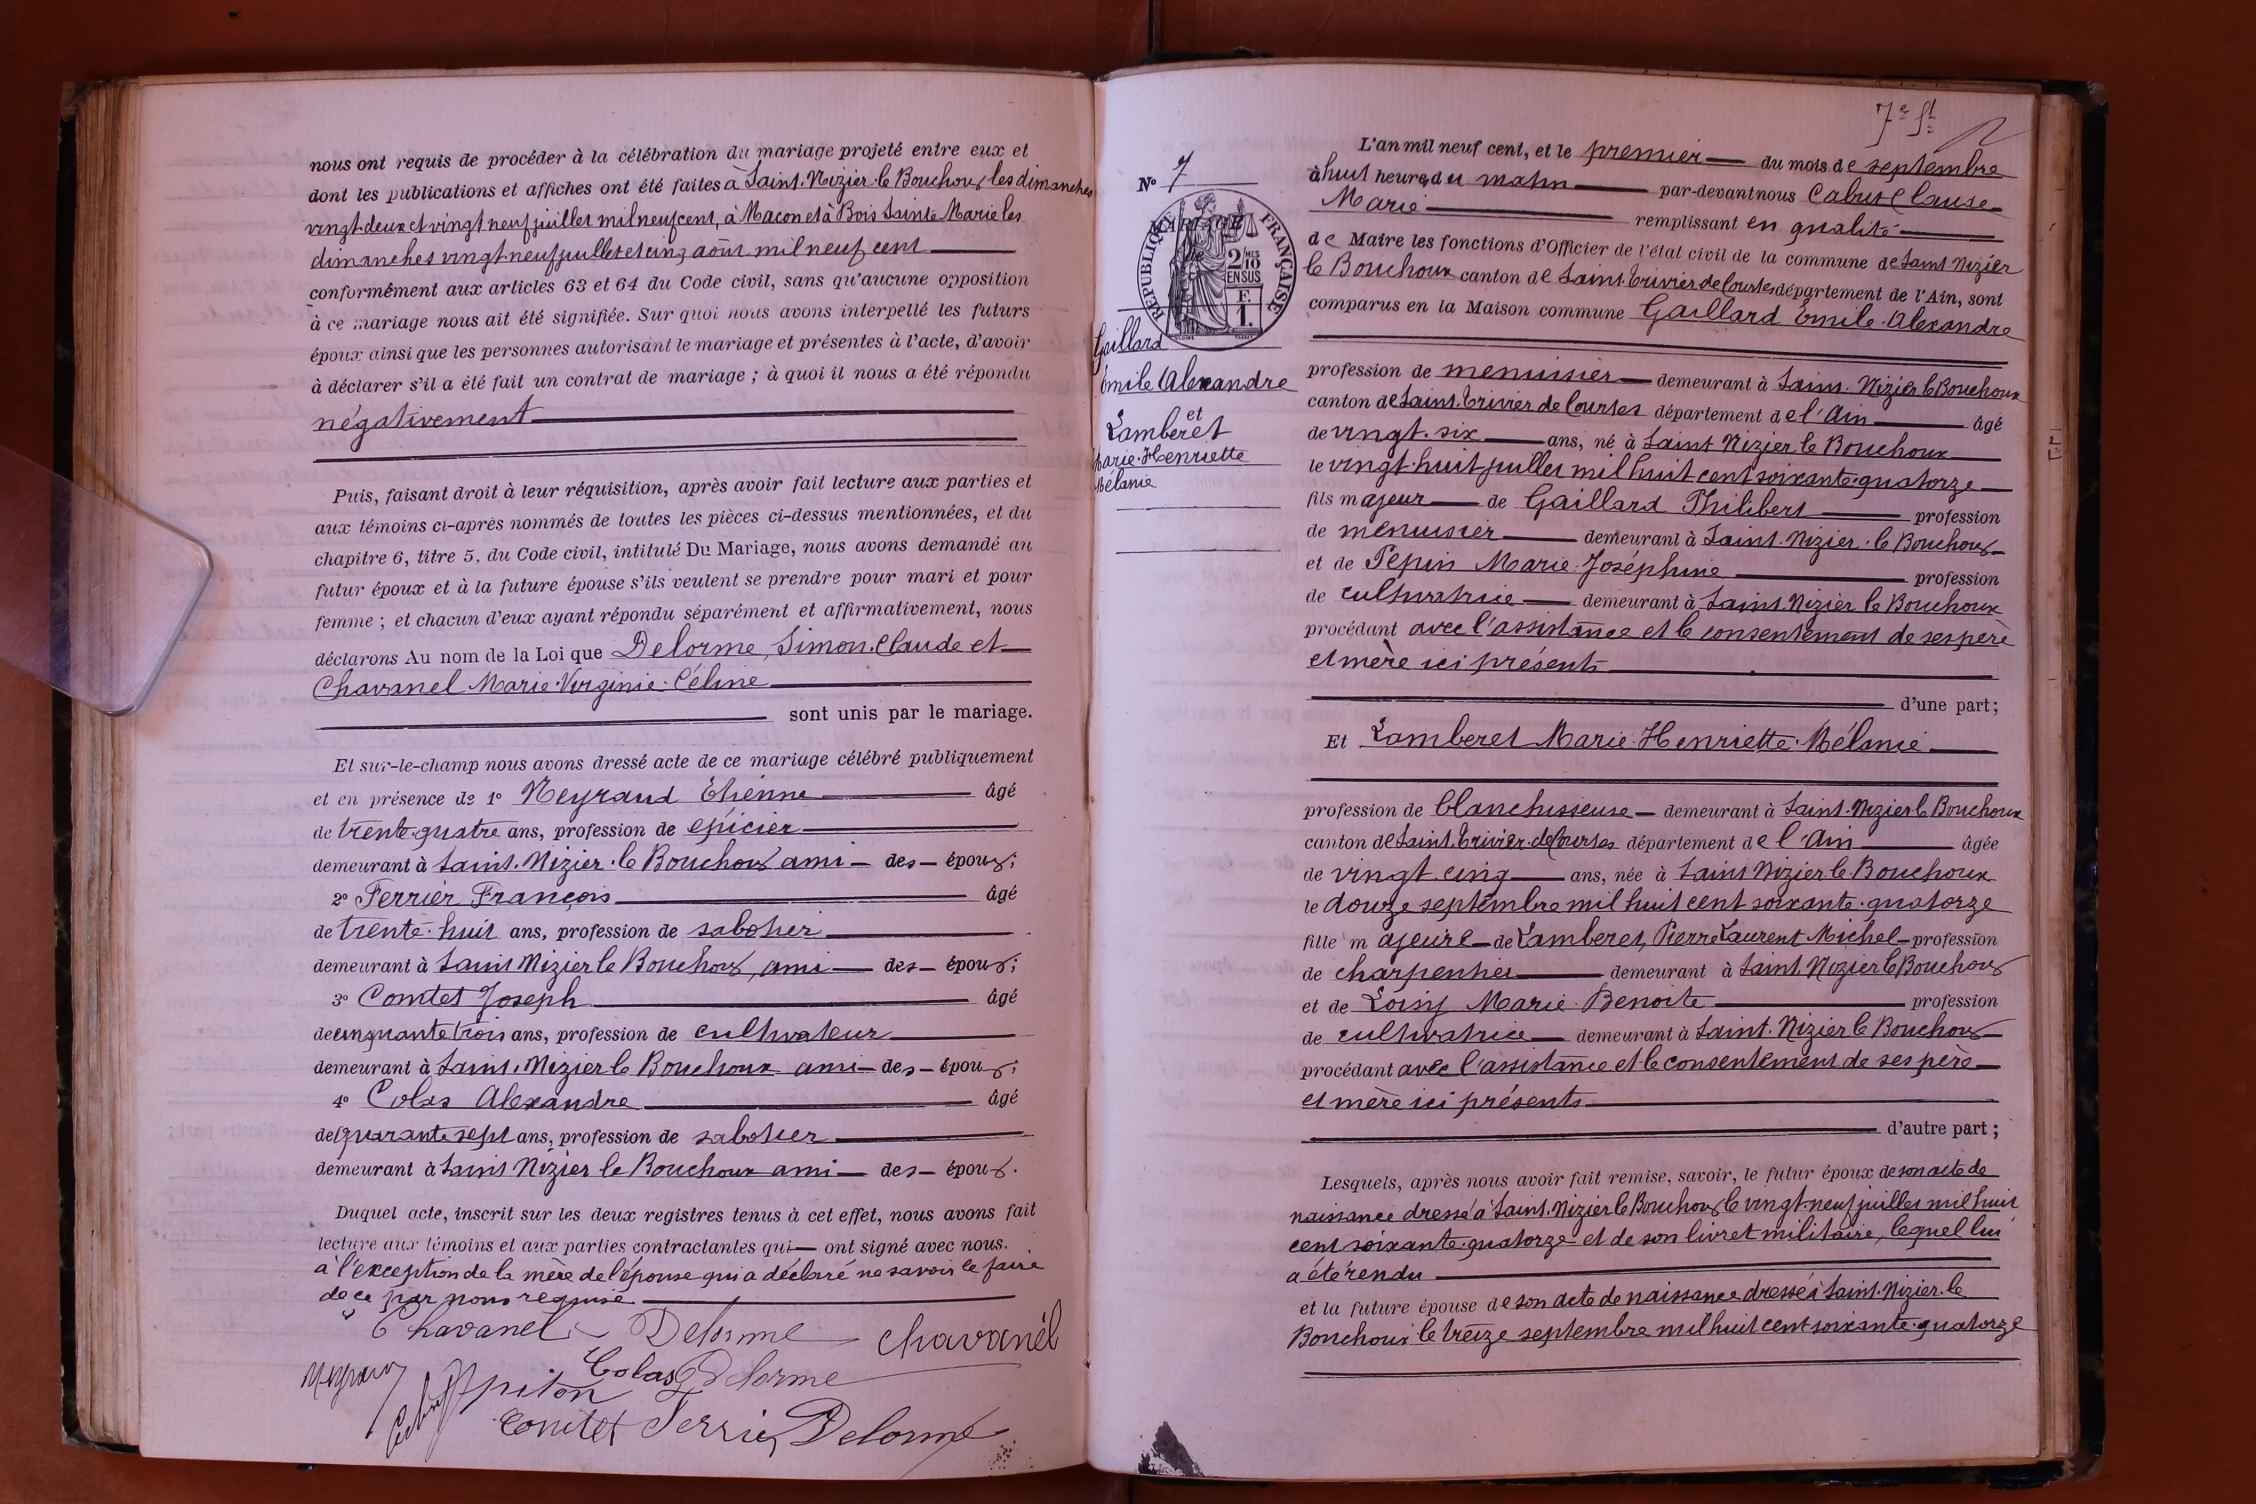 nous ont requis de procéder à la célébration du mariage projeté entre eux et
dont les publications et affiches ont été faites à Saint-Nizier-le Bouchoux les dimanches
vingt-deux et vingt neuf juillet mil neuf cent, à Macon et à Bois Sainte Marie les
dimanches vingt-neuf juillet et cinq août mil neuf cent
conformément aux articles 63 et 64 du Code civil, sans qu'aucune opposition
à ce mariage nous ait été signifiée. Sur quoi nous avons interpellé les futurs
époux ainsi que les personnes autorisant le mariage et présentes à l'acte, d'avoir
à déclarer s'il a été fait un contrat de mariage ; à quoi il nous a été répondu
négativement
Puis, faisant droit à leur réquisition, après avoir fait lecture aux parties et
aux témoins ci-après nommés de toutes les pièces ci-dessus mentionnées, et du
chapitre 6, titre 5, du Code civil, intitulé Du Mariage, nous avons demandé au
futur époux et à la future épouse s'ils veulent se prendre pour mari et pour
femme ; et chacun d'eux ayant répondu séparément et affirmativement, nous
déclarons Au nom de la Loi que Delorme, Simon. Claude et
Chavanel Marie-Virginie-Céline
sont unis par le mariage.
Et sur-le-champ nous avons dressé acte de ce mariage célébré publiquement
et en présence de 1° Neyraud Etienne âgé
de trente-quatre ans, profession de épicier
demeurant à Saint-Nizier-le Bouchoux ami des époux;
2° Ferrier François âgé
de trente-huit ans, profession de sabotier
demeurant à Saint Nizier le Bouchoux, ami des époux;
3° Comtet Joseph âgé
de cinquante trois ans, profession de cultivateur
demeurant à Saint-Nizier le Bouchoux ami des époux;
4° Colas Alexandre âgé
de quarante sept ans, profession de sabotier
demeurant à Saint Nizier le Bouchoux ami des époux.
Duquel acte, inscrit sur les deux registres tenus à cet effet, nous avons fait
lecture aux témoins et aux parties contractantes qui ont signé avec nous.
à l'exception de la mère de l'épouse qui a déclaré ne savoir le faire
de ce par nous requise
Chavanel Delorme Chavanél
Colas Delorme
Neyraud piton
Comtet Ferrier Delorme
7e ft
N° 7
MARIAGE
RÉPUBLIQUE FRANÇAISE
2/10 EN SUS
Gaillard
Emile Alexandre
et
Lamberet
Marie-Henriette
Mélanie
L'an mil neuf cent, et le premier du mois de septembre
à huit heures du matin par-devant nous Cabut Clause
Marie remplissant en qualité
de Maire les fonctions d'Officier de l'état civil de la commune de Saint Nizier
le Bouchoux canton de Saint-Trivier de Courtes département de l'Ain, sont
comparus en la Maison commune Gaillard Emile-Alexandre
profession de menuisier demeurant à Saint-Nizier le Bouchoux
canton de Saint-Trivier de Courtes département de l'Ain âgé
de vingt-six ans, né à Saint Nizier le Bouchoux
le vingt-huit juillet mil huit cent soixante-quatorze
fils majeur de Gaillard Philibert profession
de menuisier demeurant à Saint-Nizier-le Bouchoux
et de Pépin Marie-Joséphine profession
de cultivatrice demeurant à Saint Nizier le Bouchoux
procédant avec l'assistance et le consentement de ses père
et mère ici présents
d'une part;
Et Lamberet Marie-Henriette-Mélanie
profession de blanchisseuse demeurant à Saint-Nizier le Bouchoux
canton de Saint-Trivier-de Courtes département de l'Ain âgée
de vingt cinq ans, née à Saint Nizier-le-Bouchoux
le douze septembre mil huit cent soixante-quatorze
fille majeure de Lamberet, Pierre Laurent Michel profession
de charpentier demeurant à Saint-Nizier le Bouchoux
et de Loisy Marie-Benoite profession
de cultivatrice demeurant à Saint-Nizier le Bouchoux
procédant avec l'assistance et le consentement de ses père
et mère ici présents
d'autre part ;
Lesquels, après nous avoir fait remise, savoir, le futur époux de son acte de
naissance dressé à Saint-Nizier le Bouchoux le vingt-neuf juillet mil huit
cent soixante-quatorze et de son livret militaire, lequel lui
a été rendu
et la future épouse de son acte de naissance dressé à Saint-Nizier-le
Bouchoux le treize septembre mil huit cent soixante-quatorze